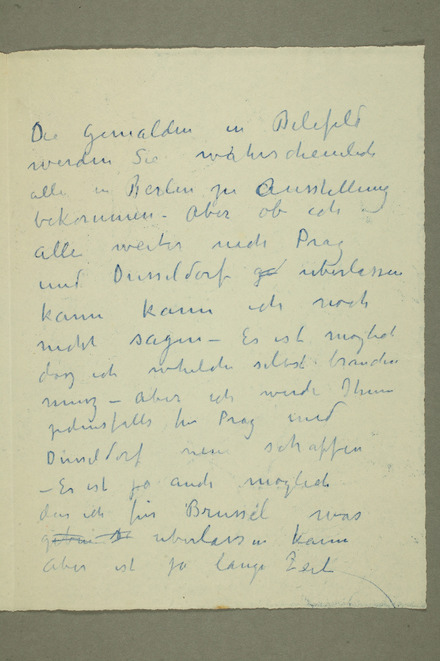 Die Gemalden in Bilefeld
werden Sie wahrscheinlich
alle in Berlin zu Ausstellung
bekommen - Aber ob ich
alle weiter nach Prag
und Dusseldorf uberlassen
kann kann ich noch
nicht sagen - Es ist moglich
das ich selbst brauchen
muss - aber ich werde Ihnen
jedenfalls für Prag und
Dusseldorf neu schaffen
- Es ist ja auch moglich
das ich für Brussel was
uberlassen kann
aber ist ja lange Zeit